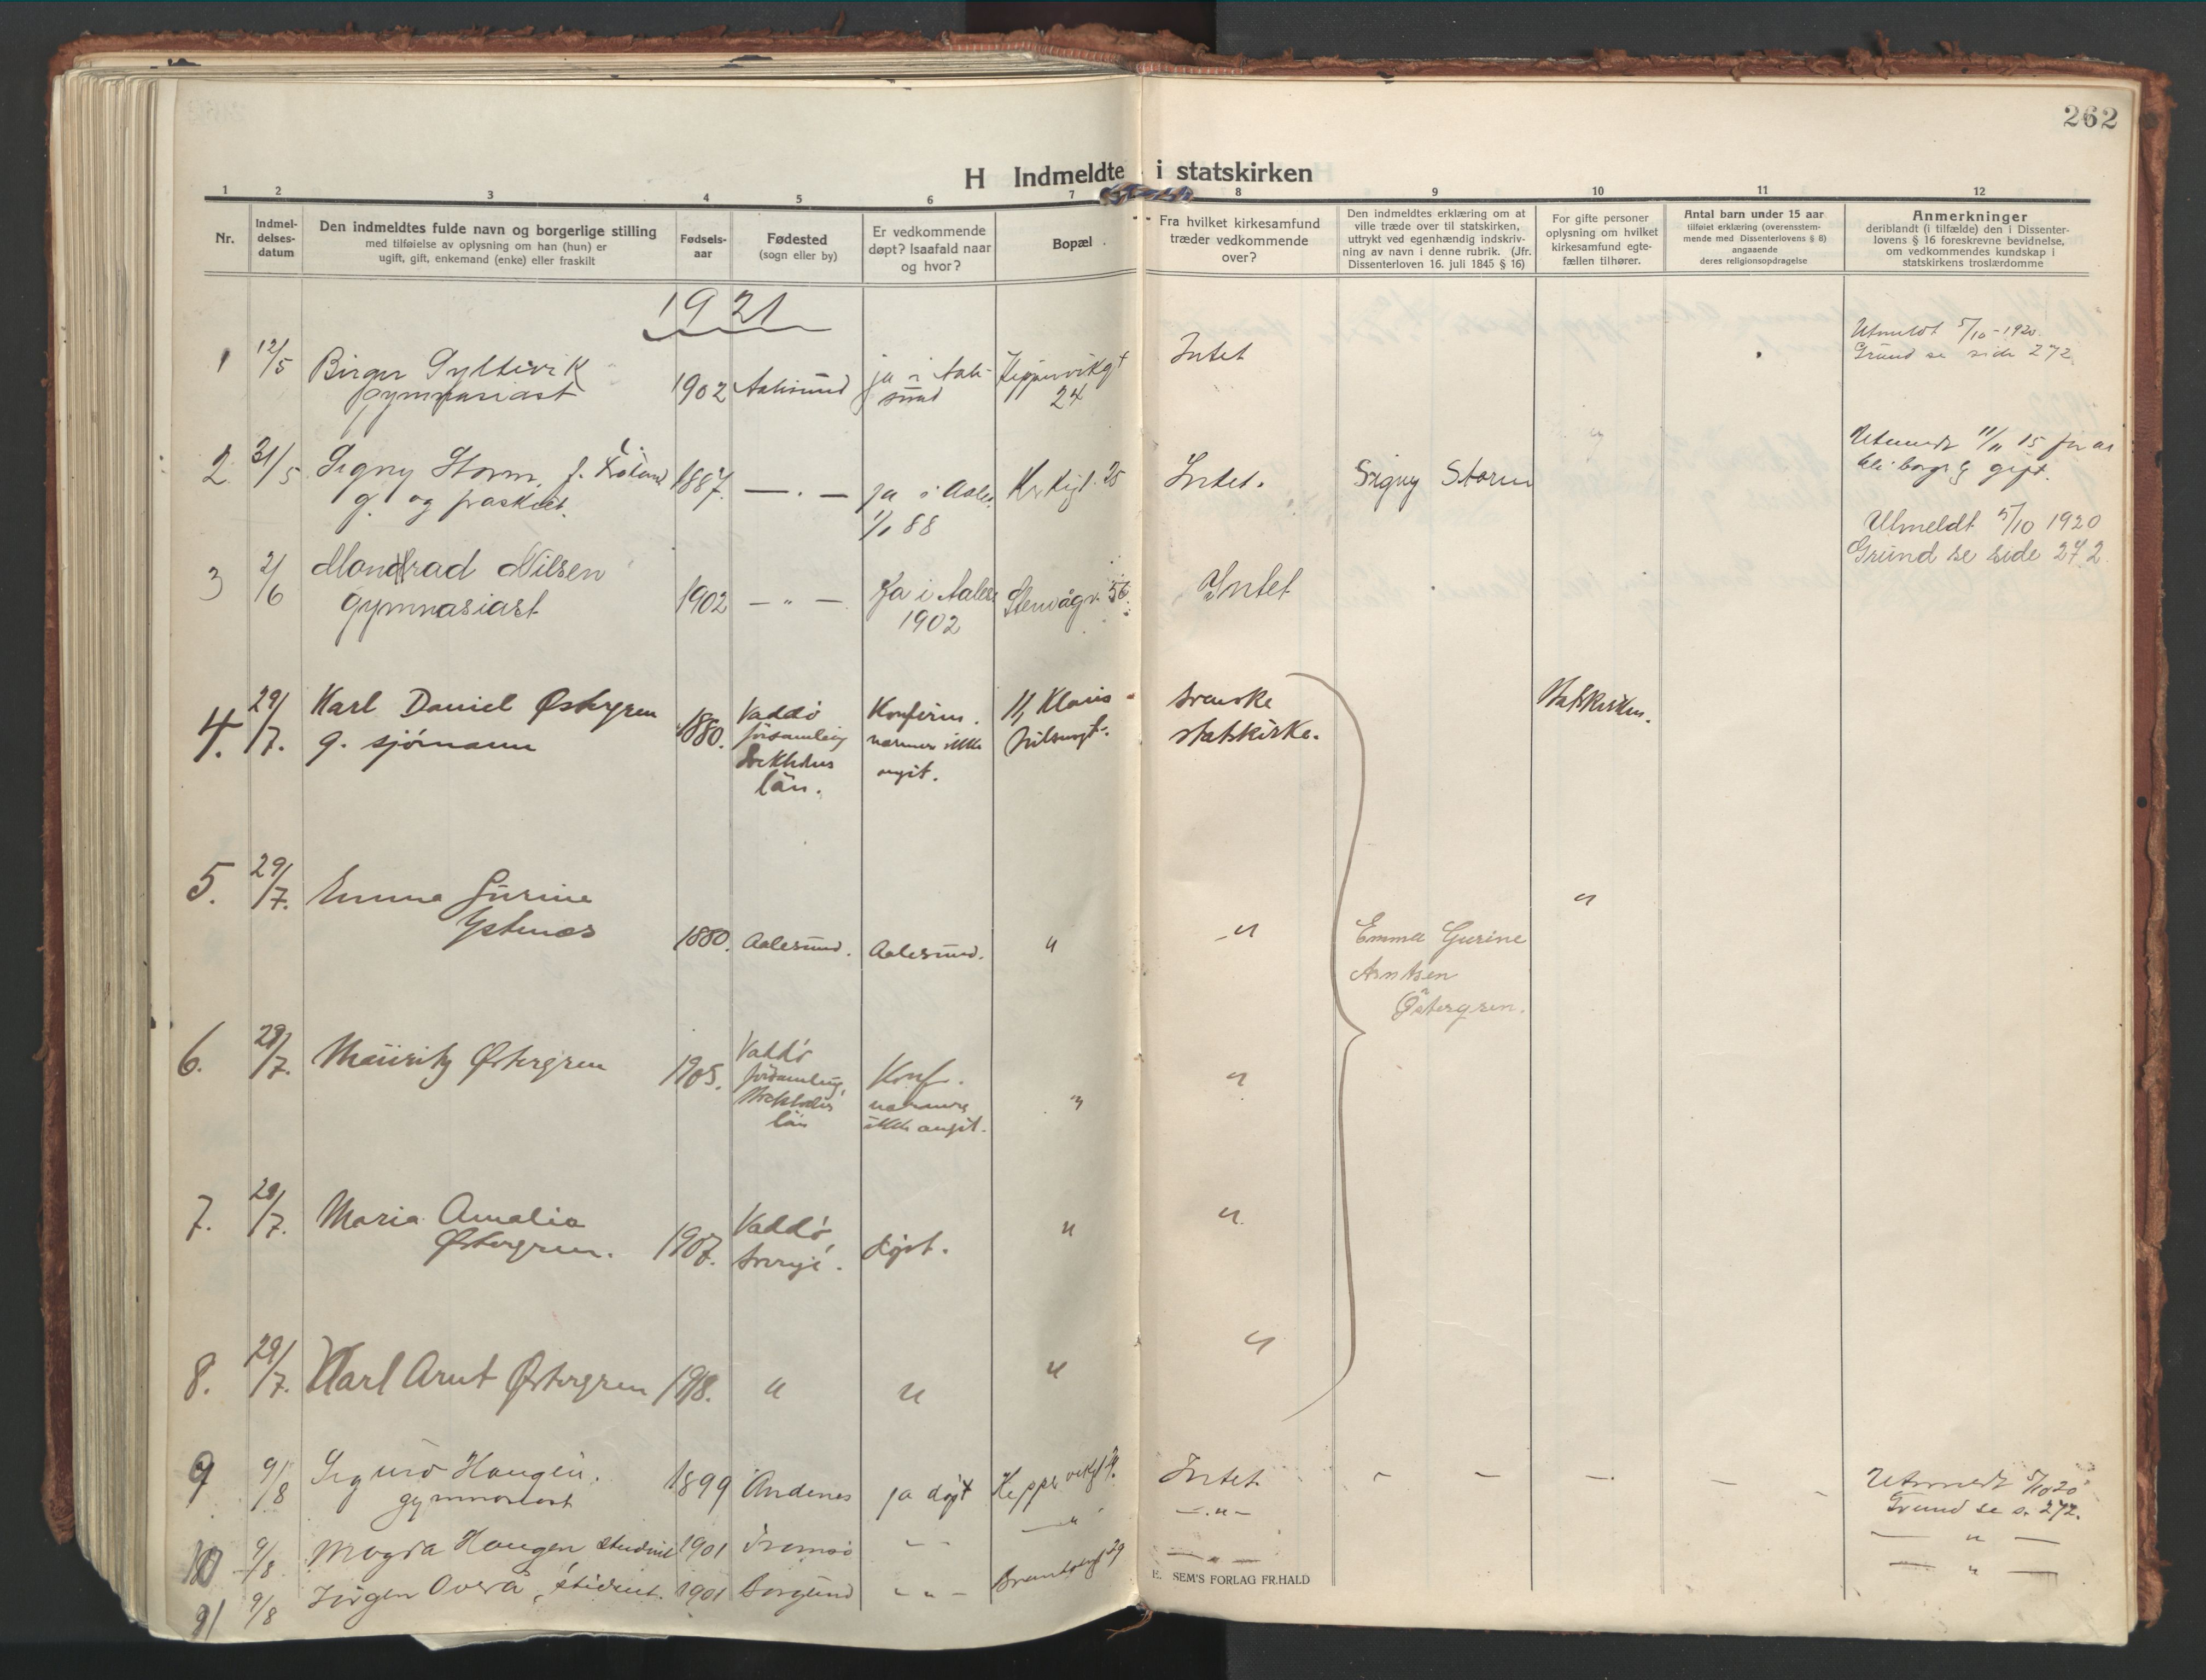 262
H Indmeldte i statskirken
1 2 3 4 5 6 7 8 9 10 11 12
Nr.
Indmel-
delses-
datum
Den indmeldtes fulde navn og borgerlige stilling
med tilføielse av oplysning om han (hun) er
ugift, gift, enkemand (enke) eller fraskilt
Fødsels-
aar
Fødested
(sogn eller by)
Er vedkommende
døpt? Isaafald naar
og hvor?
Bopæl
Fra hvilket kirkesamfund
træder vedkommende
over?
Den indmeldtes erklæring om at
ville træde over til statskirken,
uttrykt ved egenhændig indskriv-
ning av navn i denne rubrik. (Jfr.
Dissenterloven 16. juli 1845 § 16)
For gifte personer
oplysning om hvilket
kirkesamfund egte-
fællen tilhører.
Antal barn under 15 aar
tilføiet erklæring (overensstem-
mende med Dissenterlovens § 8)
angaaende
deres religionsopdragelse
Anmerkninger
deriblandt (i tilfælde) den i Dissenter-
lovens § 16 foreskrevne bevidnelse,
om vedkommendes kundskap i
statskirkens troslærdomme
1921
1 12/5 Birger Gyltevik
gymnasiast
1902 Aalesund
ja i Aale-
sund
Kippervikgt
24
Intet
Utmeldt 5/10-1920.
Grund se side 272
2. 31/5 Signy Storm, f.
g. og fraskilt.
1887. — . —
ja i Aales.
1/1 88
Kirkegt. 25
Intet.
Signy Storm
Utmeldt 11/11 15 for at
bli borgl. gift.
3 2/6 Mondrad Nilsen
Gymnasiast
1902 — " —
Ja i Aales.
1902
Stenvågv. 56
Intet
Utmeldt 5/10 1920
Grund se side 272
4. 29/7. Karl Daniel Østergren
g. sjömann
1880.
Vaddö
församling
Stockholms
län.
Konfirm.
nærmere ikke
angit.
11, Klaus
Nilsengt.
Svenske
statskirke.
Statskirken.
5. 29/7. Emma Gurine
Ystenæs
1880. Aalesund. Aalesund. " — " "
Emma Gurine
Arntsen
Østergren.
6. 29/7. Mauritz Østergren
1905.
Vaddö
församling,
Stockholms
län
Konf.
nærmere
ikke angit.
" "
7. 29/7. Maria Amalia
Østergren.
1907.
Vaddö,
Sverige.
døpt. " "
8. 29/7. Karl Arnt Østergren 1918. " " " "
9 9/8 Sigurd Haugen.
gymnasiast
1899 Andenes ja døpt
Intet. - - - - -
Utmeldt 5/10 20
Grund se s. 272.
10 9/8 Magda Haugen student 1901 Tromsø - " - — " — — " — — " —
11 9/8 Jörgen Overå, student. 1901 Borgund - " - — " — — " —
E. SEM'S FORLAG FR.HALD